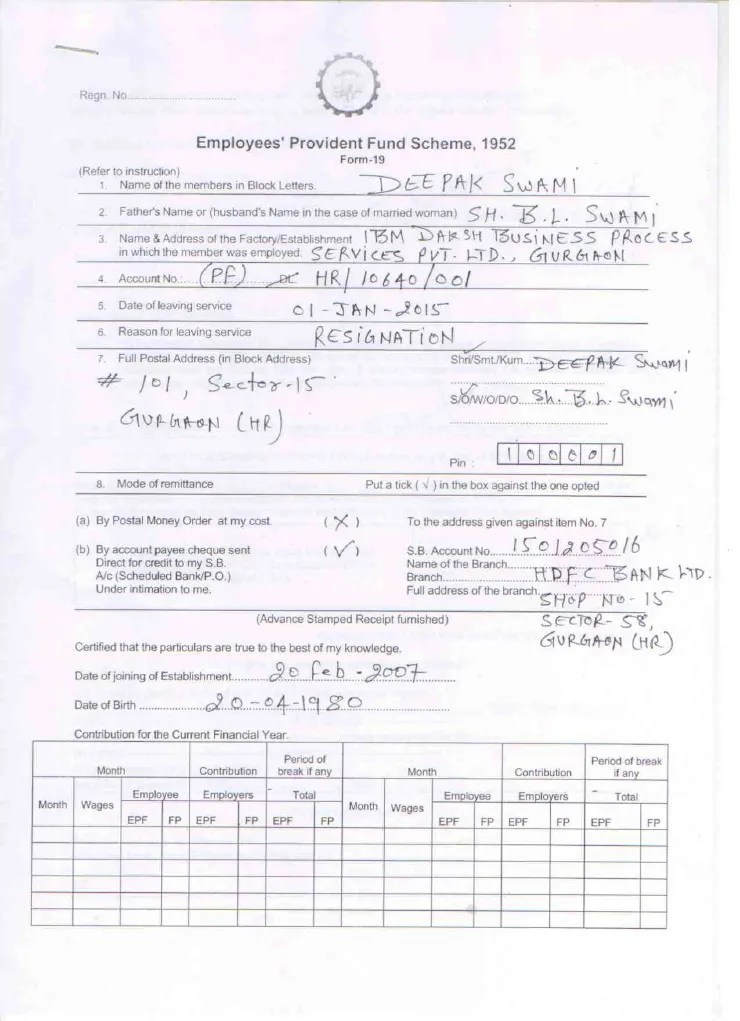 Regn. No.
Employees' Provident Fund Scheme, 1952
Form-19
(Refer to instruction)
1. Name of the members in Block Letters. DEEPAK SWAMI
2. Father's Name or (husband's Name in the case of married woman) SH. B.L. SWAMI
3. Name & Address of the Factory/Establishment IBM DAKSH BUSINESS PROCESS
in which the member was employed. SERVICES PVT. LTD., GURGAON
4. Account No.: (PF) HR/10640/001
5. Date of leaving service 01-JAN-2015
6. Reason for leaving service RESIGNATION
7. Full Postal Address (in Block Address) Shri/Smt./Kum. DEEPAK Swami
# 101, Sector-15
S/O/W/O/D/O Sh. B.L. Swami
GURGAON (HR)
Pin : 1 0 0 0 0 1
8. Mode of remittance Put a tick ( √ ) in the box against the one opted
(a) By Postal Money Order at my cost. ( X ) To the address given against item No. 7
(b) By account payee cheque sent ( √ ) S.B. Account No. 1501205016
Direct for credit to my S.B. Name of the Branch
A/c (Scheduled Bank/P.O.) Branch HDFC BANK LTD.
Under intimation to me. Full address of the branch. SHOP NO-15
(Advance Stamped Receipt furnished) SECTOR-58,
GURGAON (HR)
Certified that the particulars are true to the best of my knowledge.
Date of joining of Establishment 20 Feb-2007
Date of Birth 20-04-1980
Contribution for the Current Financial Year.
Month Contribution Period of break if any Month Contribution Period of break if any
Month Wages Employee Employers Total Month Wages Employee Employers Total
EPF FP EPF FP EPF FP EPF FP EPF FP EPF FP